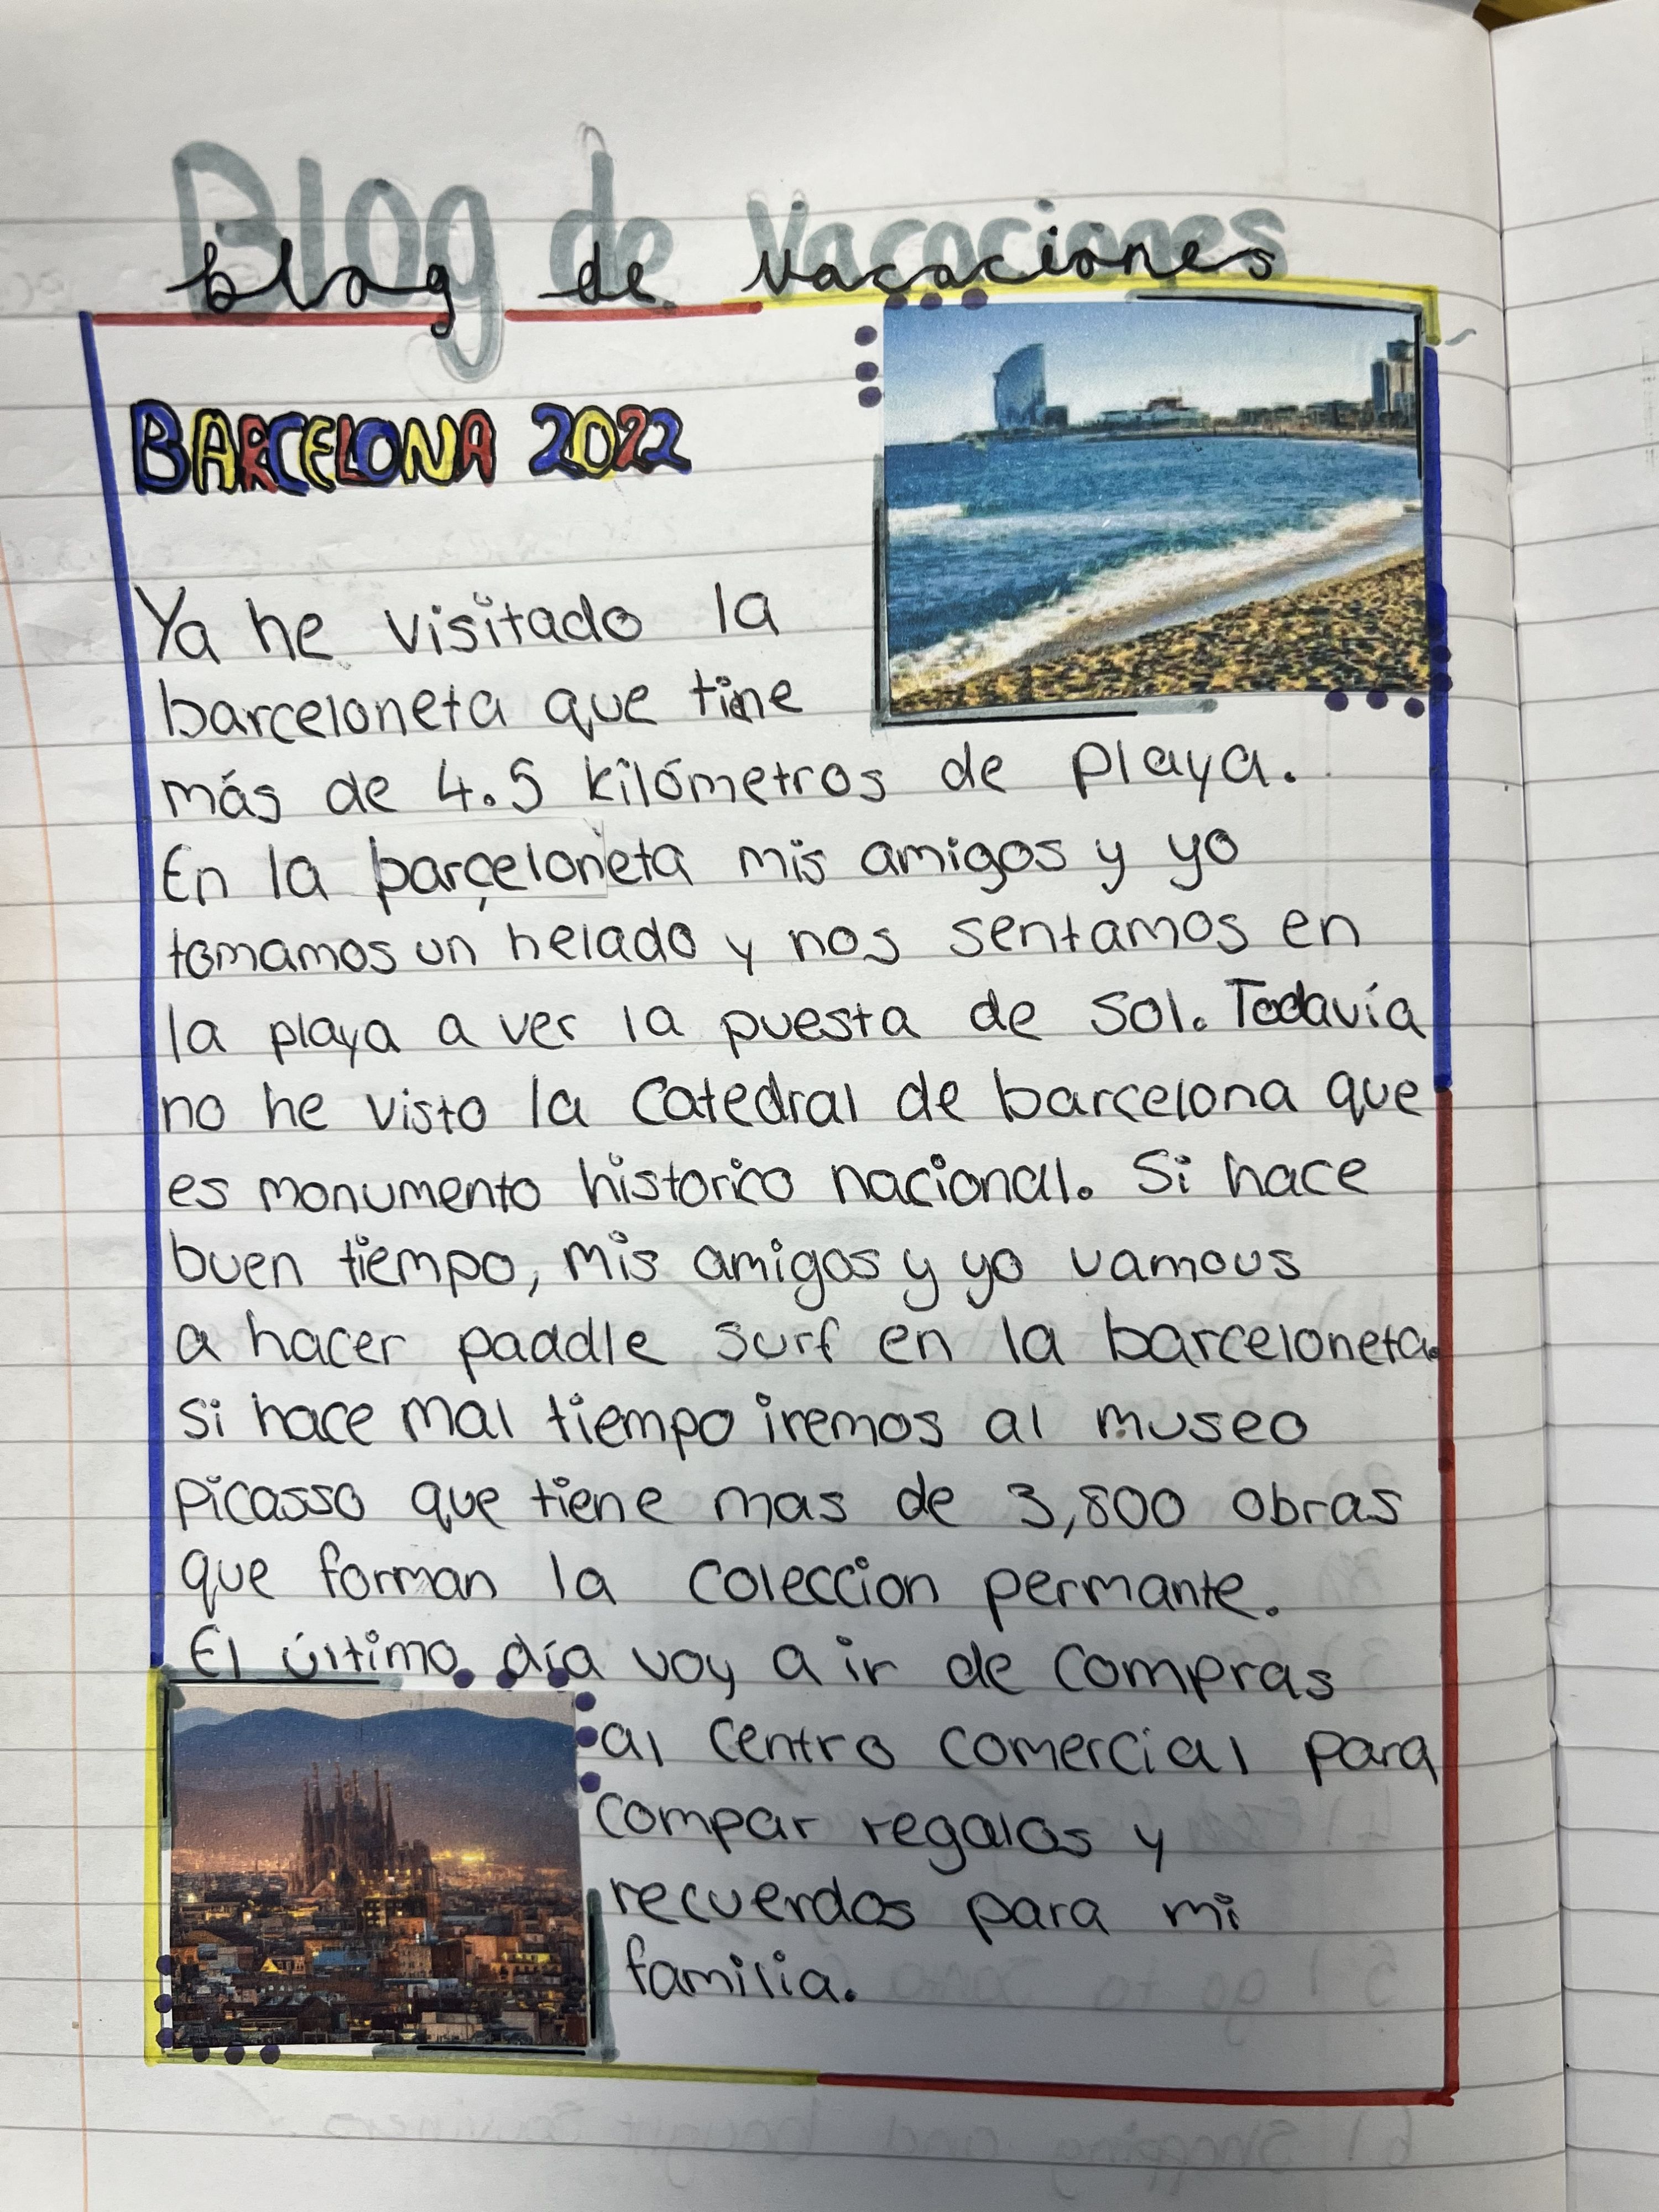 Blog de Vacaciones
blog de vacaciones
BARCELONA 2022
Ya he visitado la
barceloneta que tine
más de 4.5 kilómetros de playa.
En la barceloneta mis amigos y yo
tomamos un helado y nos sentamos en
la playa a ver la puesta de sol. Todavía
no he visto la Catedral de barcelona que
es monumento historico nacional. Si hace
buen tiempo, mis amigos y yo vamous
a hacer paddle surf en la barceloneta.
si hace mal tiempo iremos al museo
picasso que tiene mas de 3,800 obras
que forman la coleccion permante.
El último día voy a ir de compras
al centro comercial para
compar regalos y
recuerdos para mi
familia.